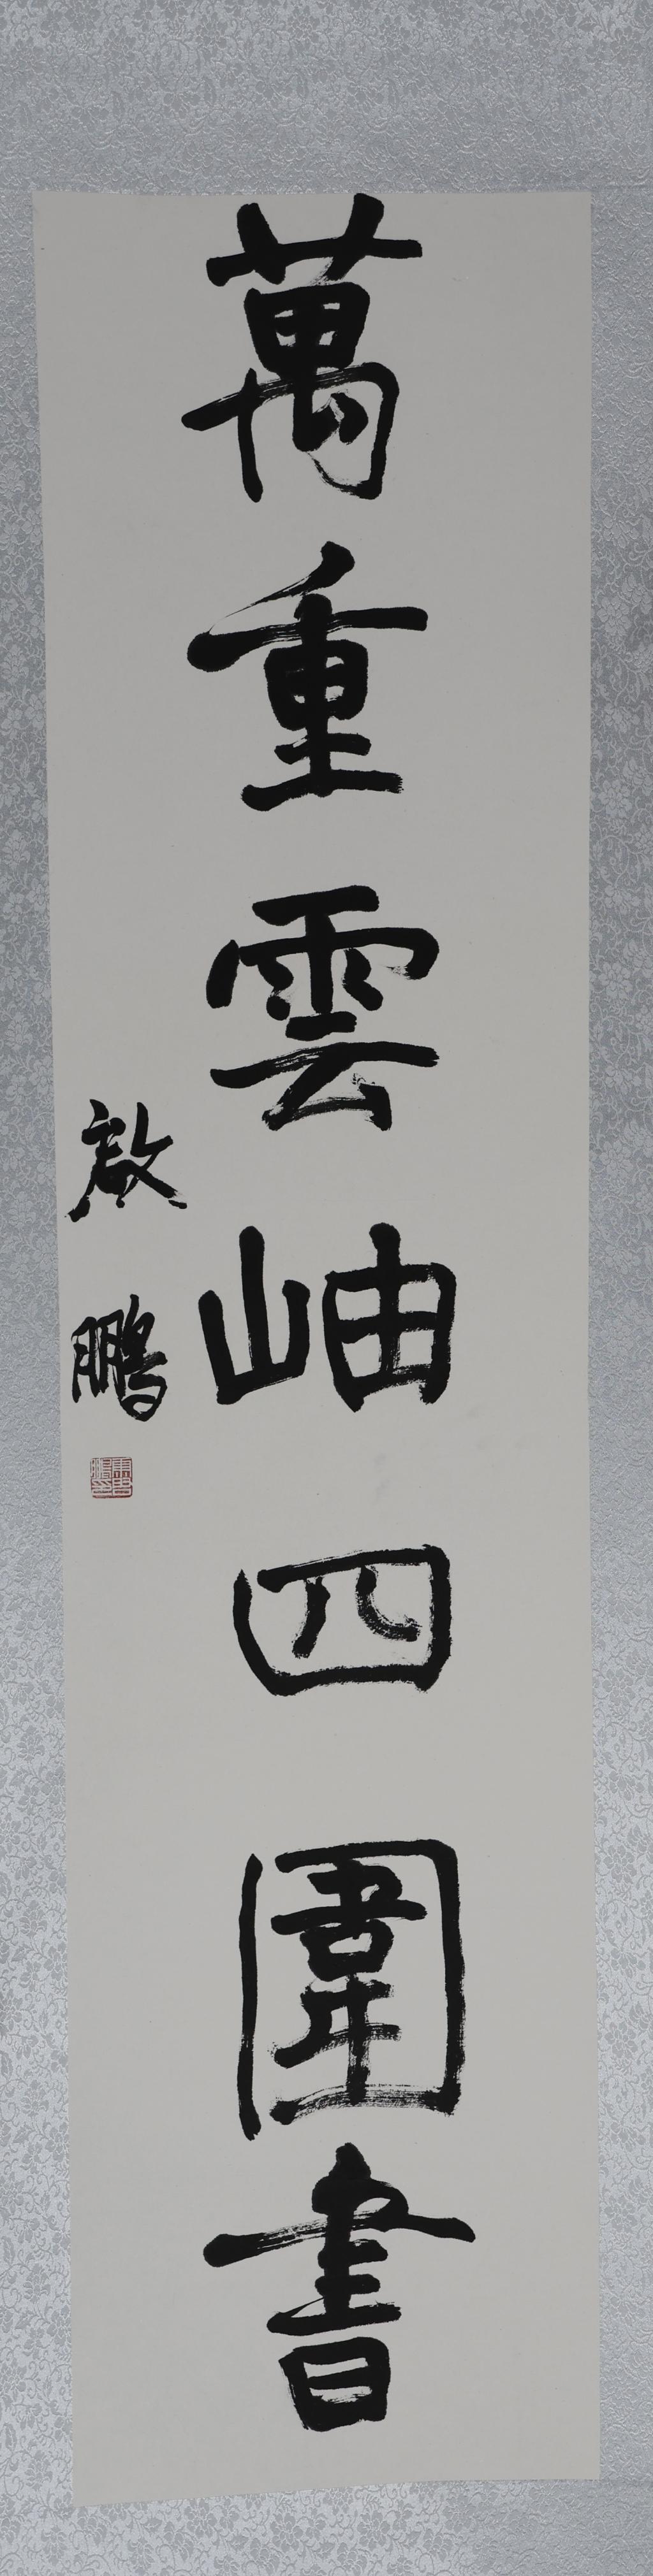 萬重雲岫四圍書
啟鵬